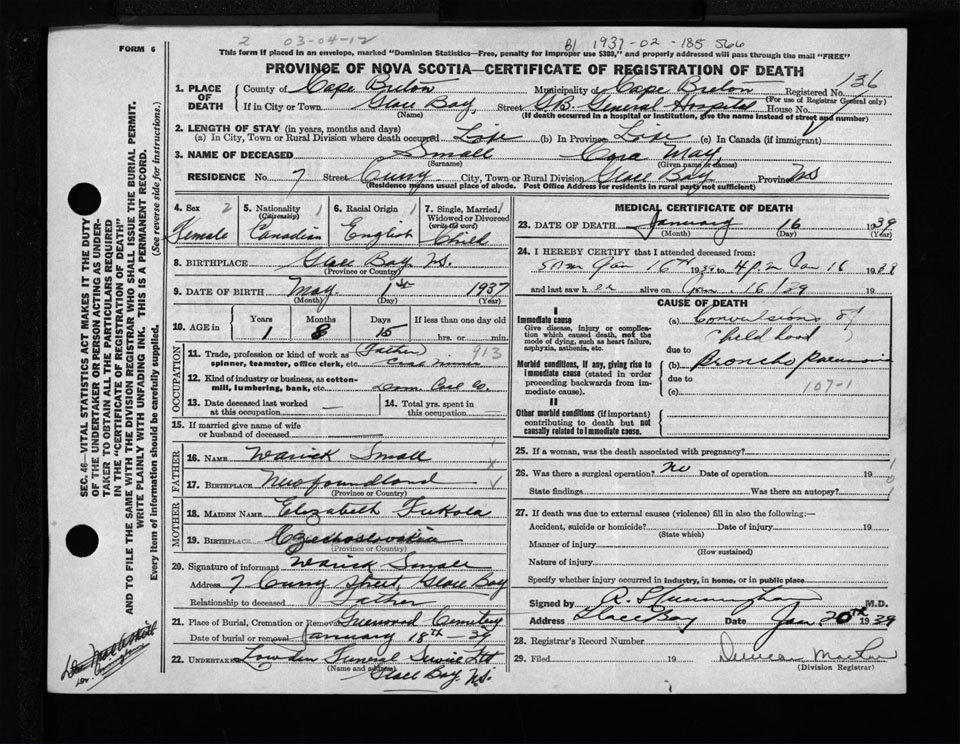 2 03-04-12 B) 1937-02-185566
FORM 6
This form if placed in an envelope, marked "Dominion Statistics—Free, penalty for improper use $300," and properly addressed will pass through the mail "FREE"
PROVINCE OF NOVA SCOTIA—CERTIFICATE OF REGISTRATION OF DEATH
1. PLACE OF DEATH County of Cape Breton Municipality of Cape Breton Registered No. 136
(For use of Registrar General only)
If in City or Town Glace Bay, Street G.B. General Hospital House No.
(Name) (If death occurred in a hospital or institution, give the name instead of street and number)
2. LENGTH OF STAY (in years, months and days)
(a) In City, Town or Rural Division where death occurred Life (b) In Province Life (c) In Canada (if immigrant)
3. NAME OF DECEASED Small Cora May
(Surname) (Given name or names)
RESIDENCE No. 7 Street Curry City, Town or Rural Division Glace Bay Province N.S
(Residence means usual place of abode. Post Office Address for residents in rural parts not sufficient)
4. Sex 2 Female
5. Nationality (Citizenship) 1 Canadian
6. Racial Origin 1 English
7. Single, Married, Widowed or Divorced (write the word) Child
8. BIRTHPLACE Glace Bay N.S.
(Province or Country)
9. DATE OF BIRTH May 1st 1937
(Month) (Day) (Year)
10. AGE in Years Months Days If less than one day old
1 8 15 hrs. or min.
OCCUPATION
11. Trade, profession or kind of work as spinner, teamster, office clerk, etc. (Father) Coal Miner 913
12. Kind of industry or business, as cotton-mill, lumbering, bank, etc. Dom Coal Co.
13. Date deceased last worked at this occupation —
14. Total yrs. spent in this occupation —
15. If married give name of wife or husband of deceased
FATHER
16. NAME Warick Small
17. BIRTHPLACE Newfoundland
(Province or Country)
MOTHER
18. MAIDEN NAME Elizabeth Fukola
19. BIRTHPLACE Czechoslovakia
(Province or Country)
20. Signature of informant Warick Small
Address 7 Curry Street, Glace Bay
Relationship to deceased Father
21. Place of Burial, Cremation or Removal Greenwood Cemetery
Date of burial or removal January 18th 39
22. Undertaker Lowden Funeral Service Ltd
(Name and address)
Glace Bay N.S.
MEDICAL CERTIFICATE OF DEATH
23. DATE OF DEATH January 16 1939
(Month) (Day) (Year)
24. I HEREBY CERTIFY that I attended deceased from:
5 AM Jan 16th 1939 to 4 p.m Jan 16 1938
and last saw her alive on Jan. 16 1939
CAUSE OF DEATH
I
Immediate cause
Give disease, injury or complication which caused death, not the mode of dying, such as heart failure, asphyxia, asthenia, etc.
(a) Convulsions of Childhood
due to
Morbid conditions, if any, giving rise to immediate cause (stated in order proceeding backwards from immediate cause).
(b) Broncho Pneumonia
due to
(c) 107-1
II
Other morbid conditions (if important) contributing to death but not causally related to immediate cause.
25. If a woman, was the death associated with pregnancy?
26. Was there a surgical operation? No Date of operation 19
State findings Was there an autopsy?
27. If death was due to external causes (violence) fill in also the following:—
Accident, suicide or homicide? Date of injury 19
(State which)
Manner of injury
(How sustained)
Nature of injury
Specify whether injury occurred in industry, in home, or in public place
Signed by R. S. Cunningham M.D.
Address Glace Bay Date Jan 20th 1939
28. Registrar's Record Number
29. Filed 19
(Division Registrar)
SEC. 46—VITAL STATISTICS ACT MAKES IT THE DUTY OF THE UNDERTAKER OR PERSON ACTING AS UNDERTAKER TO OBTAIN ALL THE PARTICULARS REQUIRED IN THE "CERTIFICATE OF REGISTRATION OF DEATH" AND TO FILE THE SAME WITH THE DIVISION REGISTRAR WHO SHALL ISSUE THE BURIAL PERMIT.
WRITE PLAINLY WITH UNFADING INK. THIS IS A PERMANENT RECORD.
Every item of information should be carefully supplied. (See reverse side for instructions.)